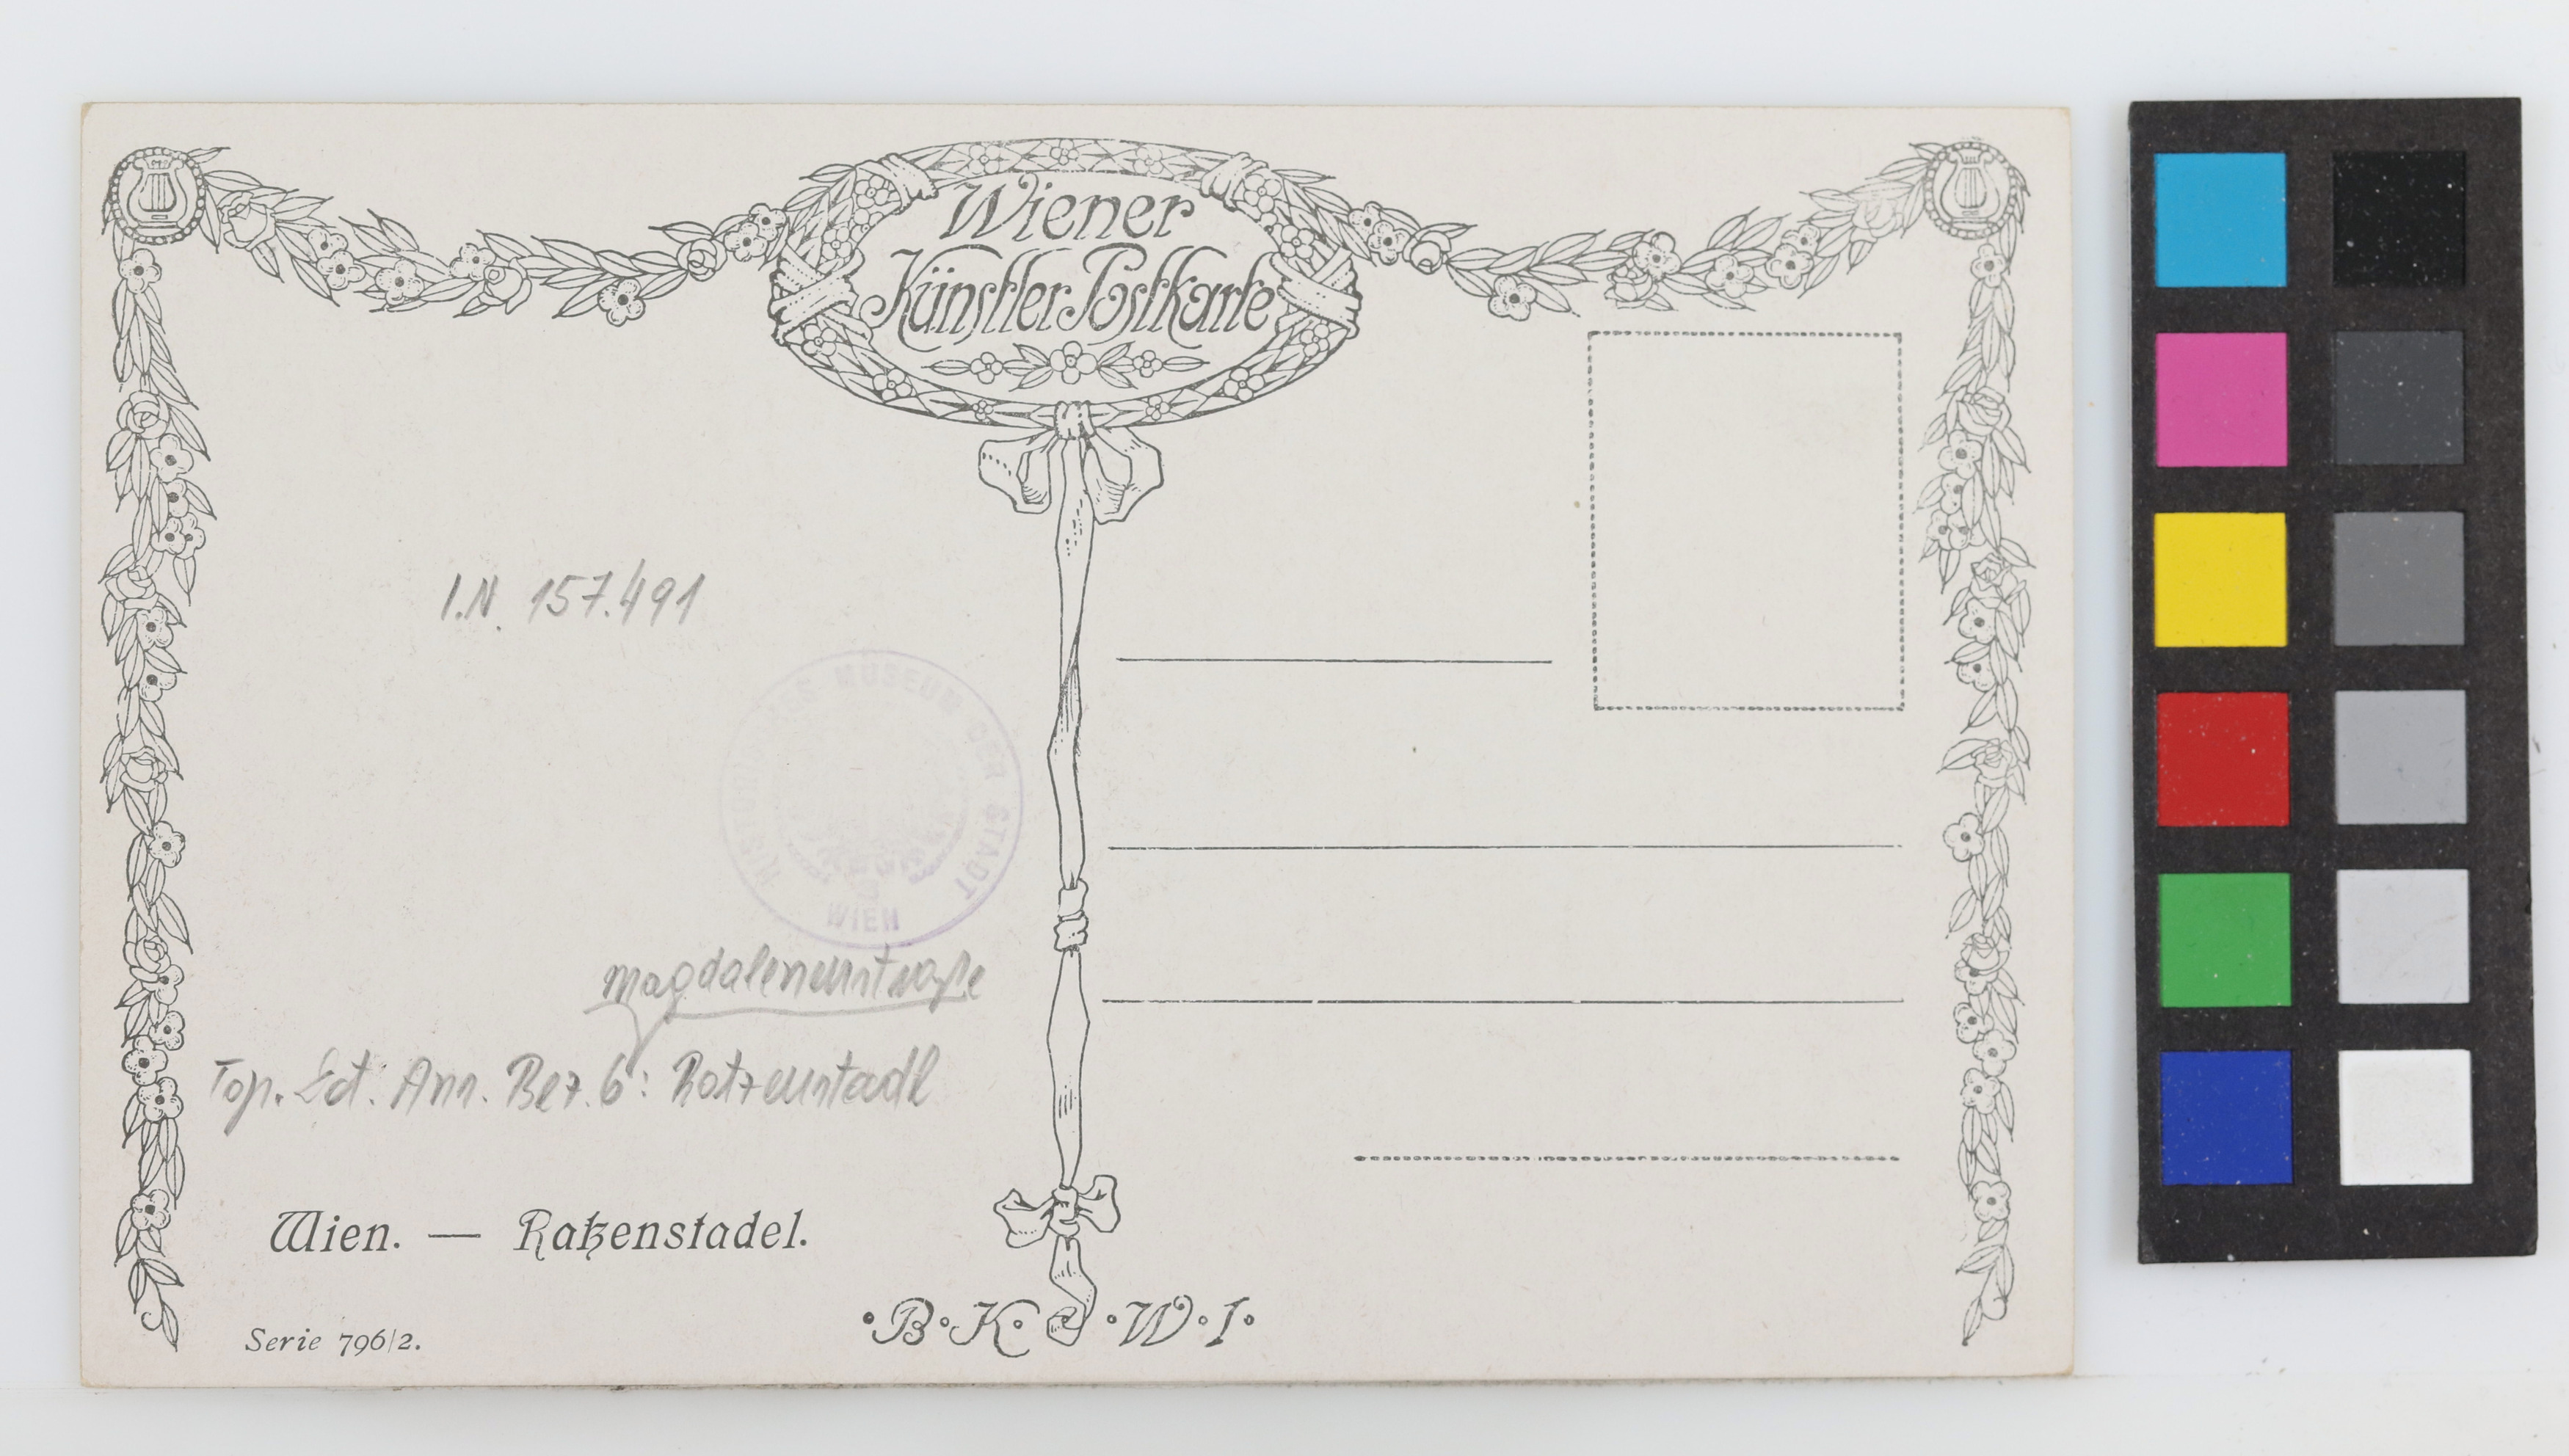 Wiener
Künstler Postkarte
I.N. 157.491
HISTORISCHES MUSEUM DER STADT
WIEN
Magdalenenstraße
Top. Ect. Ann. Bez. 6: Ratzenstadl
Wien. — Ratzenstadel.
Serie 796/2.
·B·K·W·I·